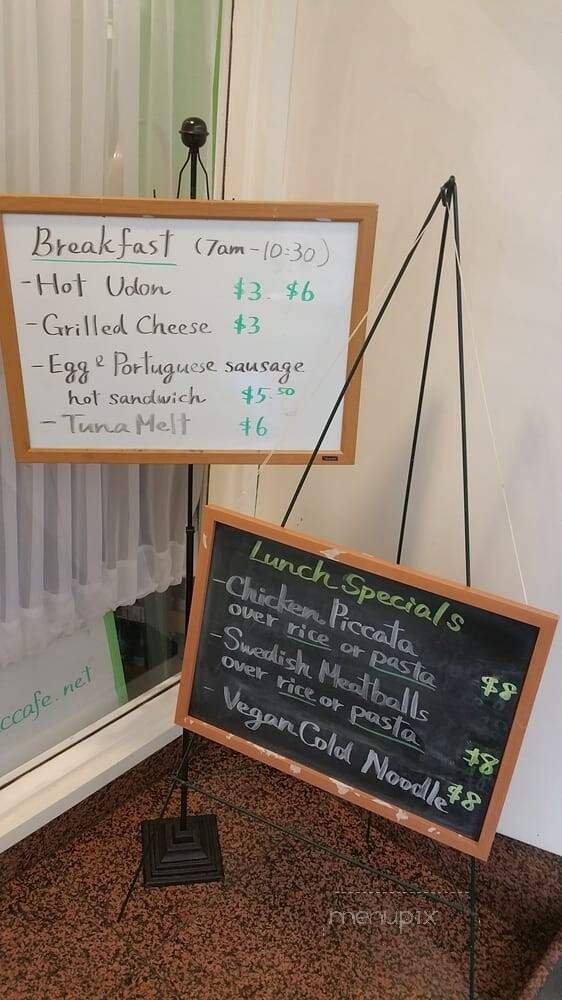 Breakfast (7am-10:30)
-Hot Udon $3 $6
-Grilled Cheese $3
-Egg & Portuguese sausage
hot sandwich $5.50
-Tuna Melt $6
Lunch Specials
-Chicken Piccata
over rice or pasta $8
-Swedish Meatballs
over rice or pasta $8
-Vegan Cold Noodle $8
ccafe.net
menupix